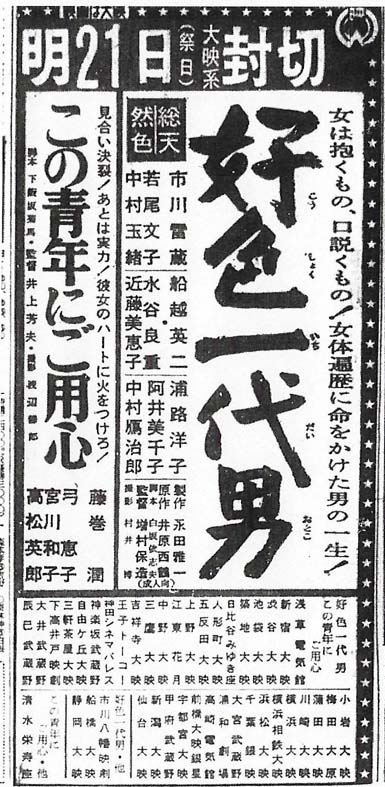 映画は大映
明21日(祭日)大映系封切
女は抱くもの、口説くもの!女体遍歴に命をかけた男の一生!
好色一代男
こうしょくいちだいおとこ
総天然色
市川雷蔵
若尾文子
中村玉緒
船越英二
水谷良重
近藤美恵子
浦路洋子
阿井美千子
中村鴈治郎
製作 永田雅一
原作 井原西鶴
脚本 白坂依志夫
監督 増村保造
撮影 村井博
見合い決裂!あとは実力!彼女のハートに火をつけろ!
この青年にご用心
脚本 下飯坂菊馬・監督 井上芳夫・撮影 渡辺
藤巻潤
弓恵子
宮川和子
高松英郎
好色一代男
この青年にご用心
浅草電気館
新宿大映
渋谷大映
池袋大映
築地大映
日比谷みゆき座
人形町大映
五反田大映
上野大映
江東花月
中野大映
三鷹大映
吉祥寺大映
王子トーコー
神田シネマパレス
神楽坂武蔵野
自由ケ丘大映
三軒茶屋大映
下高井戸映劇
大井武蔵野
辰巳武蔵野
小岩大映
梅田大原
蒲田大映
川崎大映
横浜大映
横浜相鉄大映
浜松大映
千葉銀映
大宮武蔵野
浦和劇場
高崎電気館
前橋大映銀星
宇都宮大映
甲府武蔵野
新潟大映
仙台大映
好色一代男・他
市川八幡映劇
船橋大映
静岡大映
この青年にご用心・他
清水栄寿座